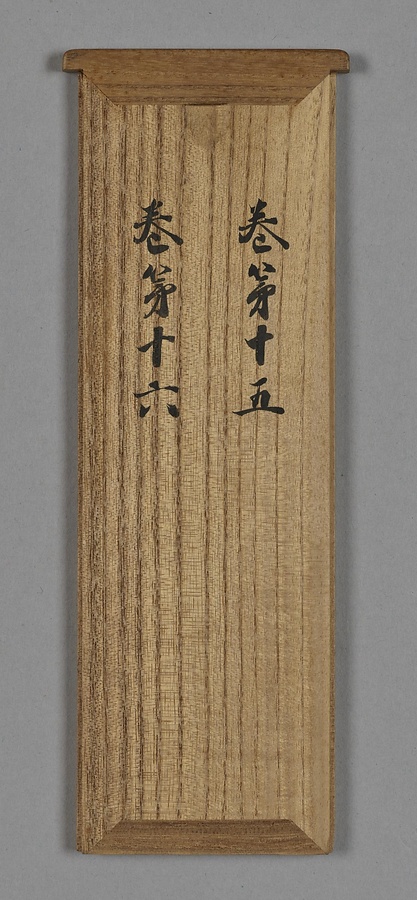 巻第十五
巻第十六